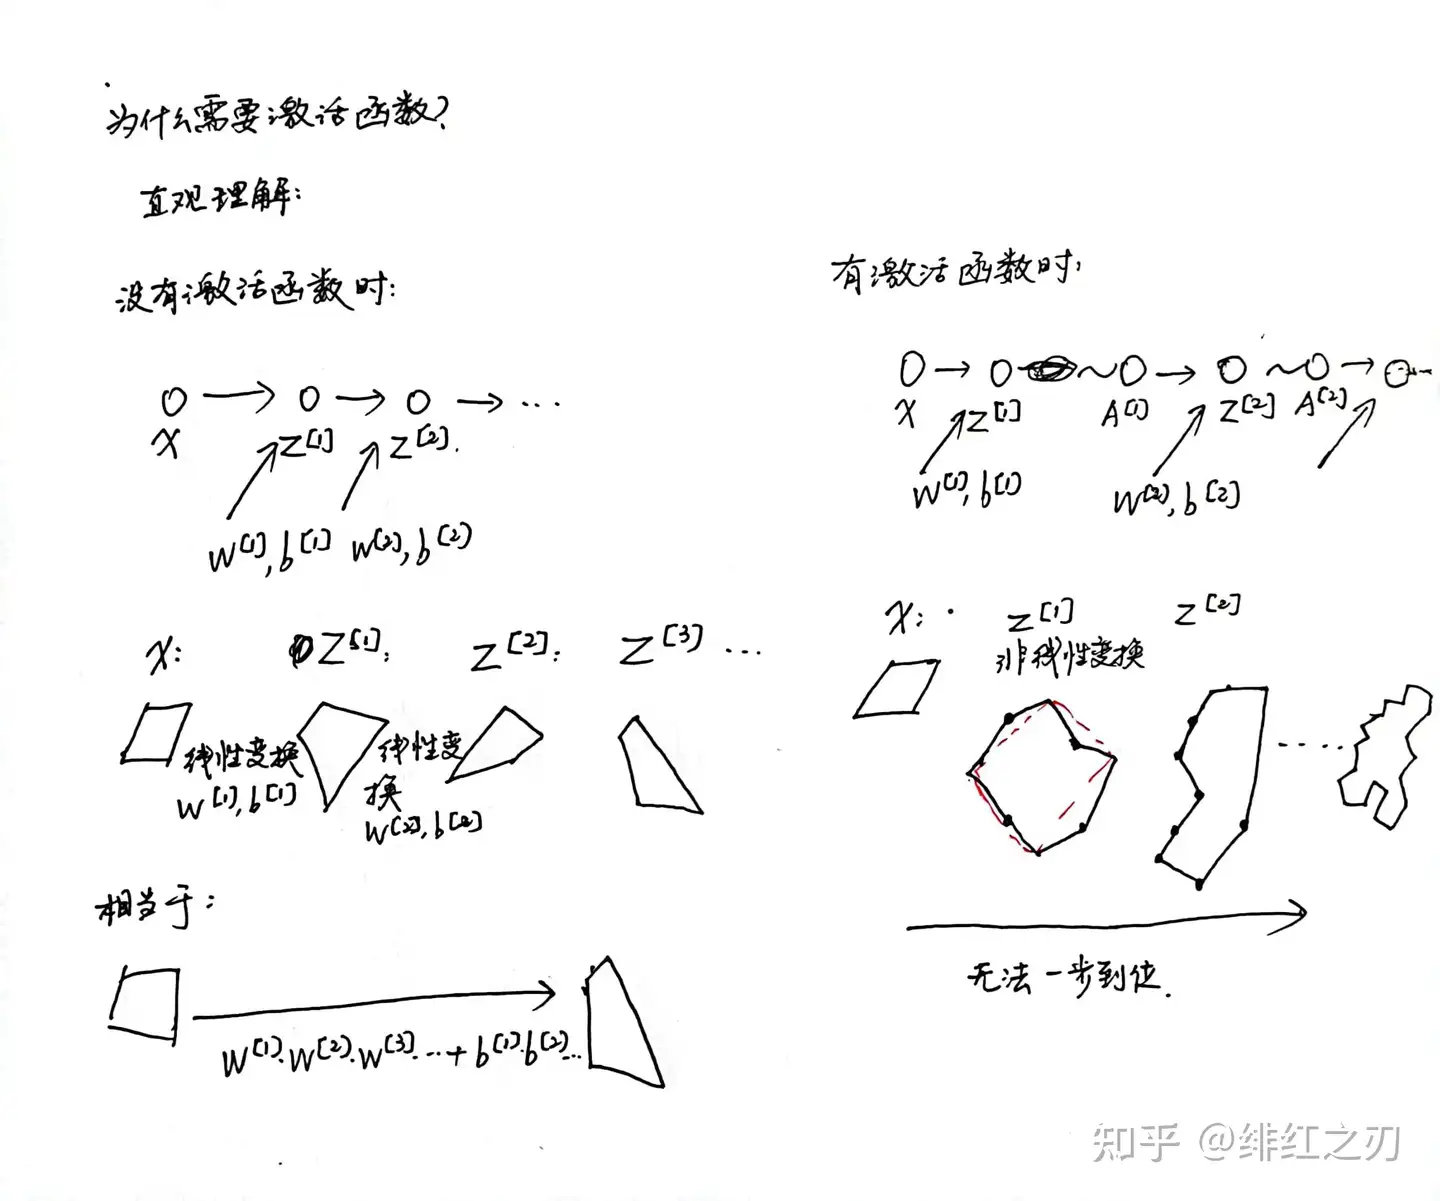 为什么需要激活函数?
直观理解:
没有激活函数时:
X
Z[1]
Z[2].
W[1], b[1]
W[2], b[2]
X:
Z[1]:
Z[2]:
Z[3] ...
线性变换
W[1], b[1]
线性变
换
W[2], b[2]
相当于:
W[1]·W[2]·W[3]·...+ b[1]·b[2]...
有激活函数时:
X
Z[1]
A[1]
Z[2]
A[2]
W[1], b[1]
W[2], b[2]
X:
Z[1]
Z[2]
非线性变换
无法一步到位.
知乎 @绯红之刃